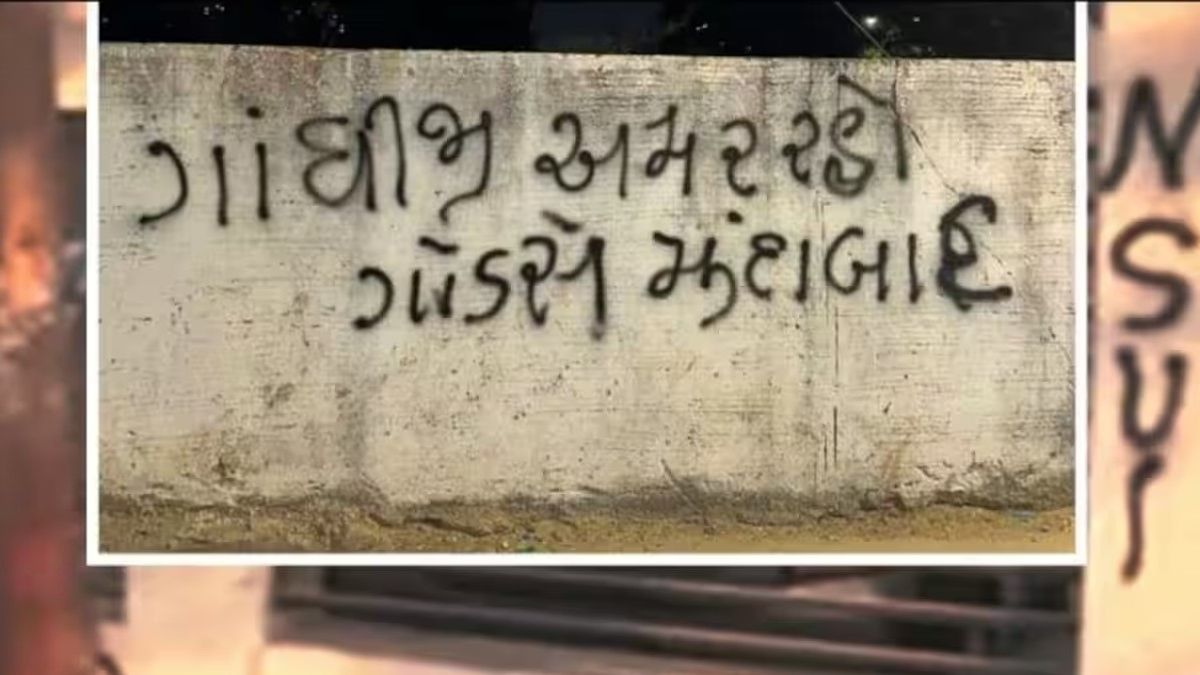 ગાંધીજી અમર રહો
ગોડસે મુંદાબાદ
N
S
U
I